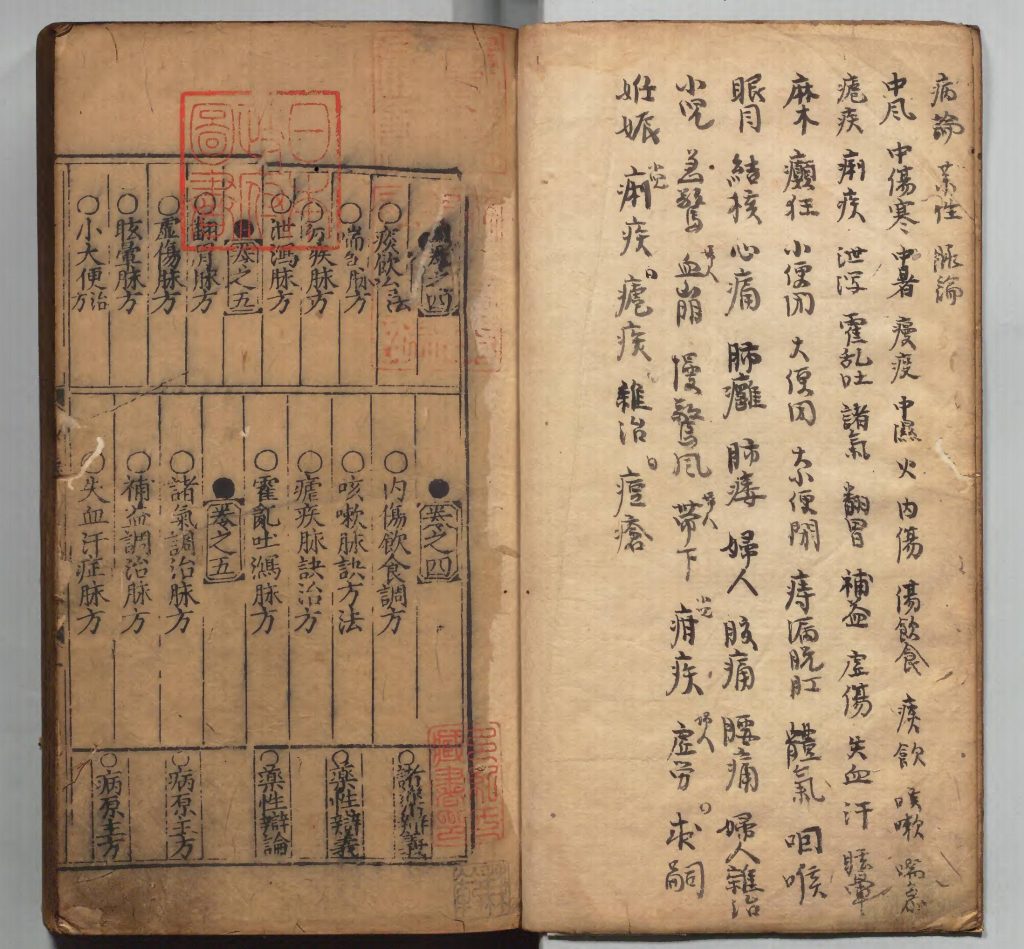 病論 藥性 脉論
中风 中傷寒 中暑 瘦疫 中濕 火 内傷 傷飲食 痰飲 咳嗽 喘急
瘧疾 痢疾 泄泻 霍乱吐 諸氣 翻胃 補益 虚傷 失血汗 眩暈
麻木 癲狂 小便閉 大便閉 大小便閉 痔漏脱肛 體氣 咽喉
眼目 結核 心痛 肺癰 肺痿 婦人 腹痛 腰痛 婦人雜治
小児 急驚 婦人 血崩 慢驚风 婦人 帶下 小児 疳疾 婦人 虚劳 求嗣
妊娠 小児 痢疾 瘧疾 雜治 痘瘡
卷之四
○痰飲治法
○喘急脉方
○痢疾脉方
○泄瀉脉方
卷之五
○翻胃脉方
○虚傷脉方
○眩暈脉方
○小大便治方
●卷之四
○内傷飲食調方
○咳嗽脉訣方法
○瘧疾脉訣治方
○霍亂吐瀉脉方
●卷之五
○諸氣調治脉方
○補益調治脉方
○失血汗症脉方
○諸藥辨義
○藥性辨義
○藥性辯論
○病原主方
○病原主方
日本
政府
圖書